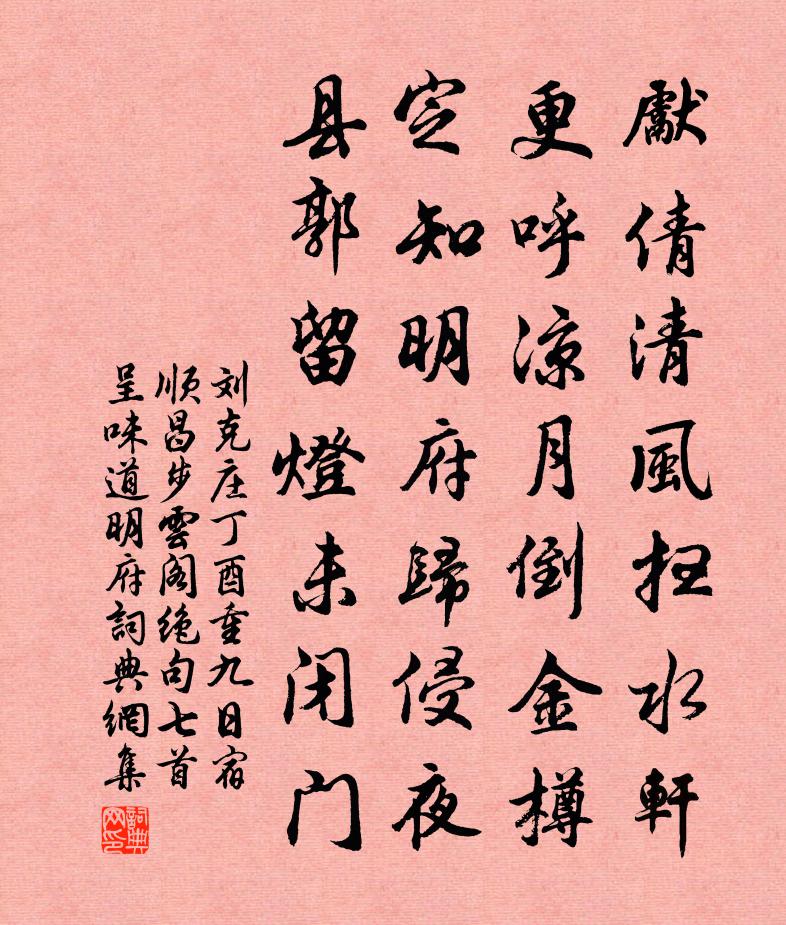 獻倩清風扫水軒
更呼凉月倒金樽
定知明府歸侵夜
县郭留燈未闭门
刘克庄丁酉重九日宿
順昌步雲阁绝句七首
呈味道明府詞典網集
詞典
网印